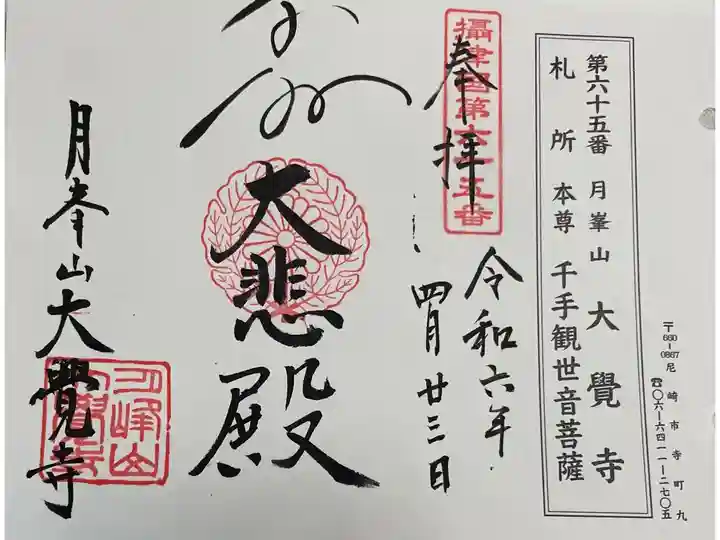 第六十五番 月峯山 大覺寺
札所 本尊 千手観世音菩薩
〒660-0867 尼崎市寺町九
☎〇六ー六四一一ー二七〇五
攝津國第六十五番
奉拝
令和六年
四月廿三日
大悲殿
月峯山大覺寺
月峰山
大覺寺